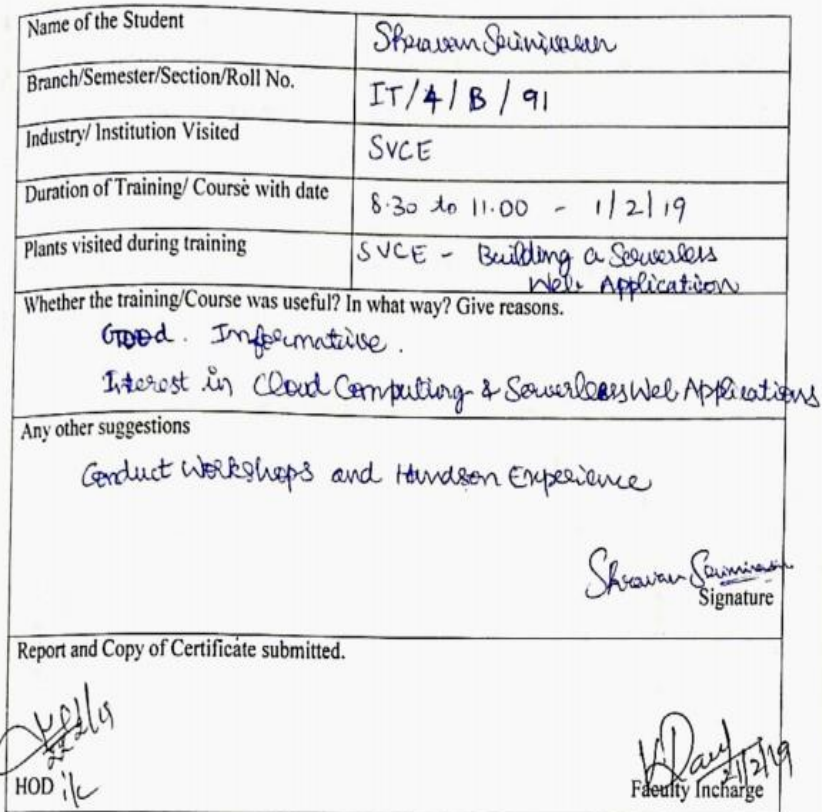 Name of the Student
Shravan Srinivasan
Branch/Semester/Section/Roll No.
IT/4/B/91
Industry/ Institution Visited
SVCE
Duration of Training/ Course with date
8.30 to 11.00 - 1/2/19
Plants visited during training
SVCE - Building a Serverless
Web Application
Whether the training/Course was useful? In what way? Give reasons.
Good. Informative.
Interest in Cloud Computing & Serverless Web Applications
Any other suggestions
Conduct Workshops and Handson Experience
Shravan Srinivasan
Signature
Report and Copy of Certificate submitted.
21/2/19
HOD i/c
Faculty Incharge